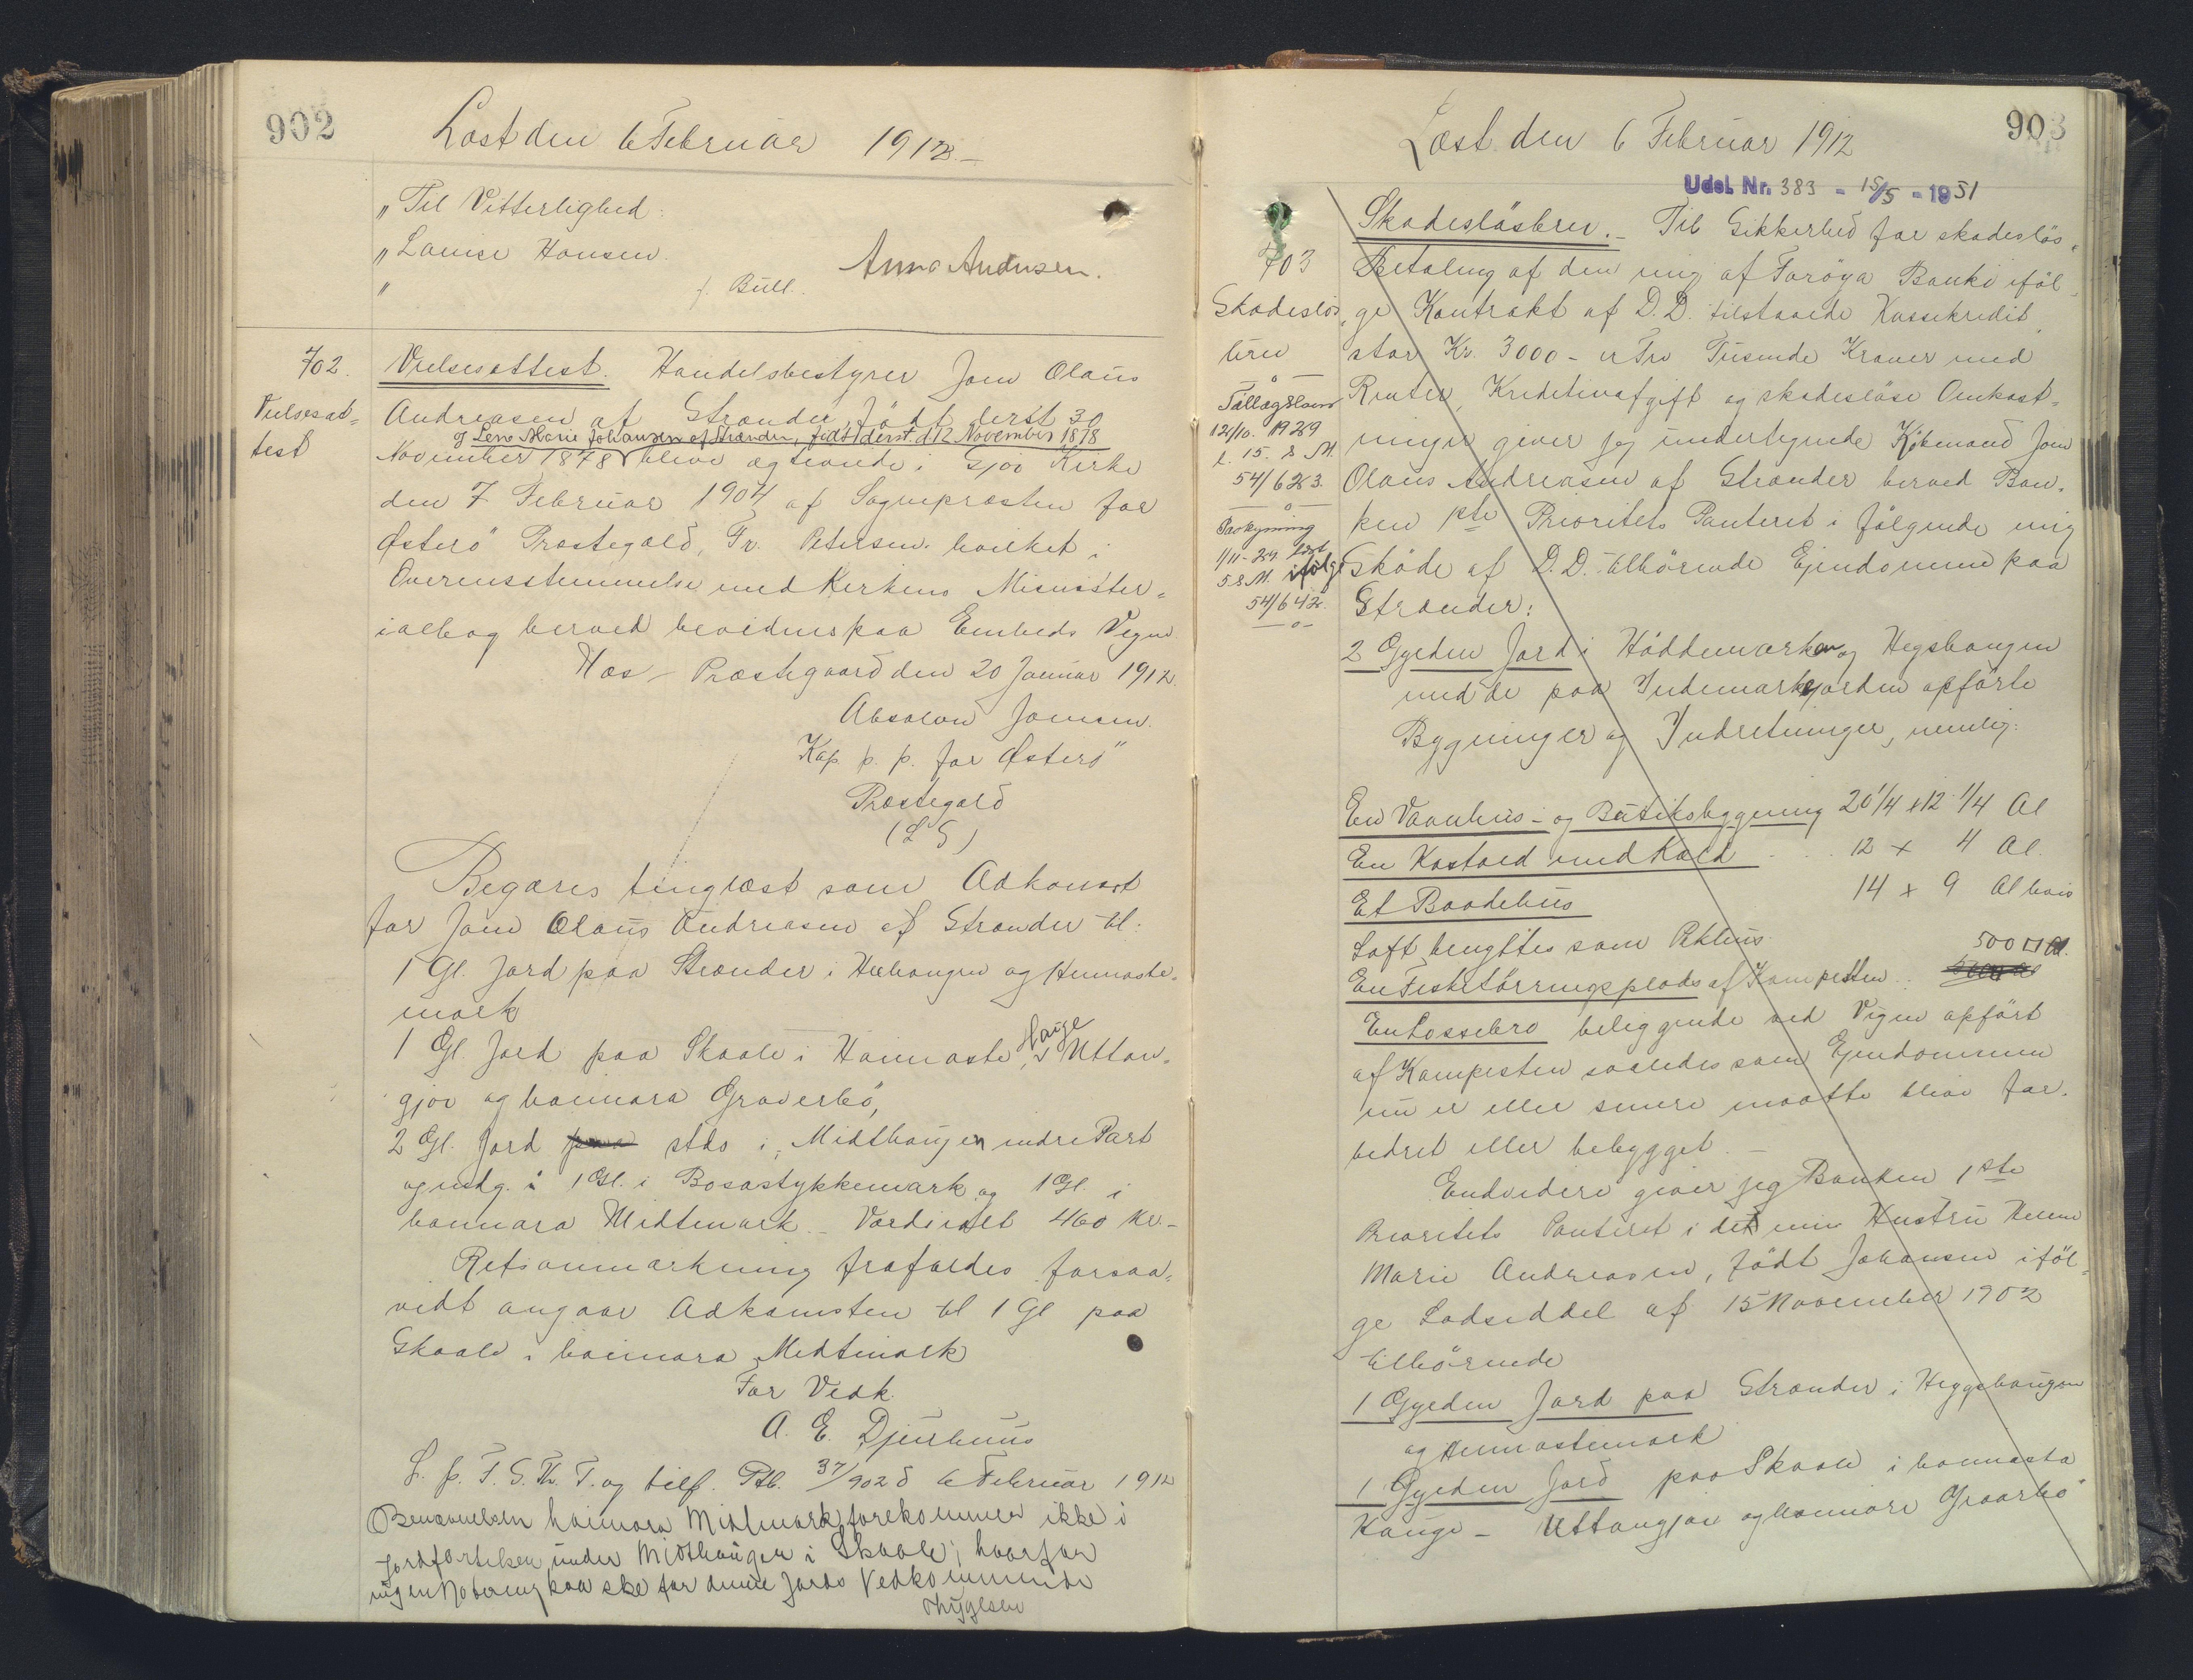 902
Læst den 6 Februar 1912.-
"Til Vitterlighed:
"Louise Hansen.
Anna Andersen.
" f. Bull.
702.
Vielsesat=
test
Vielsesattest. Handelsbestyrer Joen Olaus
Andreasen af Strænder, födt derst 30
og Lena Marie Johansen af Strænder, födt derst. d 12 November 1878
November 1878 bleve ægteviede i Gjov Kirke
den 7 Februar 1904 af Sognepræsten for
Österö Præstegæld, Fr. Petersen. hvilket i
Overensstemmelse med Kirkens Minister=
ialbog herved bevidnes paa Embeds Vegne
Næs - Præstegaard den 20 Januar 1912.
Absalon Joensen.
Kap. p. p. for Österö
Præstegæld
(L S)
Begæres tinglæst som Adkomst
for Joen Olaus Andreasen af Strænder til:
1 Gl. Jord paa Strænder i Heehaugen og Hennaste=
mark
1 Gl. Jord paa Skaale i Hannaste Hauge, Uttan=
gjov og hannara Graverbö,
2 Gl. Jord paa stds i, Midthaugen indre Part
og udg. i 1 Gl. i Bosastykkemark og 1 Gl. i
hannara Midtmark. Værdi ialt 460 Kr.-
Retsanmærkning frafaldes forsaa=
vidt angaar Adkomsten til 1 Gl paa
Skaale i hannara Midtmark
For Vedk.
A. E. Djurhuus
L. p. F. S. Th. T. og tilf. Ptb. 37/902 d 6 Februar 1912
Benævnelsen hannara Midtmark forekommer ikke i
Jordfortelsen under Midthaugen i Skaale, hvorfor
ingen Notering kan ske for denne Jords Vedkommende
Thygesen
903
Læst den 6 Februar 1912
Udsl. Nr. 383 - 15/5 - 1951
703
Skadeslös=
brev
-o-
Tillægslaan
12/10. 1929
l. 15. s. M.
54/623.
-o-
Paategning
1/11-29. læst
5 s. M. ifölge
54/642.
-o-
Skadeslösbrev.- Til Sikkerhed for skadeslös
Betaling af den mig af Foröya Banki iföl=
ge Kontrakt af D. D. tilstaaede Kassekredit
stor Kr. 3000 - er Tre Tusinde Kroner med
Renter, Kreditivafgift og skadeslöse Omkost=
ninger giver jeg undertegnede Köbmand Joen
Olaus Andreasen af Strænder herved Ban=
ken 1ste Prioritets Panteret i fölgende mig
ifölge Sköde af D. D. tilhörende Ejendomme paa
Strænder:
2 Gyeden Jord i Höddemarken og Hegshaugen
med de paa Indemarksjorden opförte
Bygninger og Indretninger, nemlig:
En Varehus- og Butiksbygning 20 1/4 x 12 1/4 Al
En Kostald med Kold 12 x 4 Al.
Et Baadehus 14 x 9 Al hvis
Loft benyttes som Pakhus. 500 □ Al.
En Fisketörringsplads af Kampesten.
En Lossebro beliggende ved Vigen opfört
af Kampesten saaledes som Ejendommen
nu er eller senere maatte blive for=
bedret eller bebygget. -
Endvidere giver jeg Banken 1ste
Prioritets Panteret i det min Hustru Helene
Marie Andreasen, födt Johansen iföl=
ge Lodseddel af 15 November 1902
tilhörende
1 Gyeden Jord paa Strænder i Heggshaugen
og Hennastemark
1 Gyeden Jord paa Skaale i hannasta
Hauge - Uttangjov og hannara Graarbö